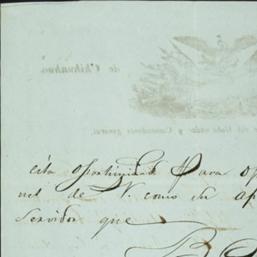 de Chihuahua.
y Comandante general
esta oportunidad Para op
nel de V. como su ap
Servidor que
B